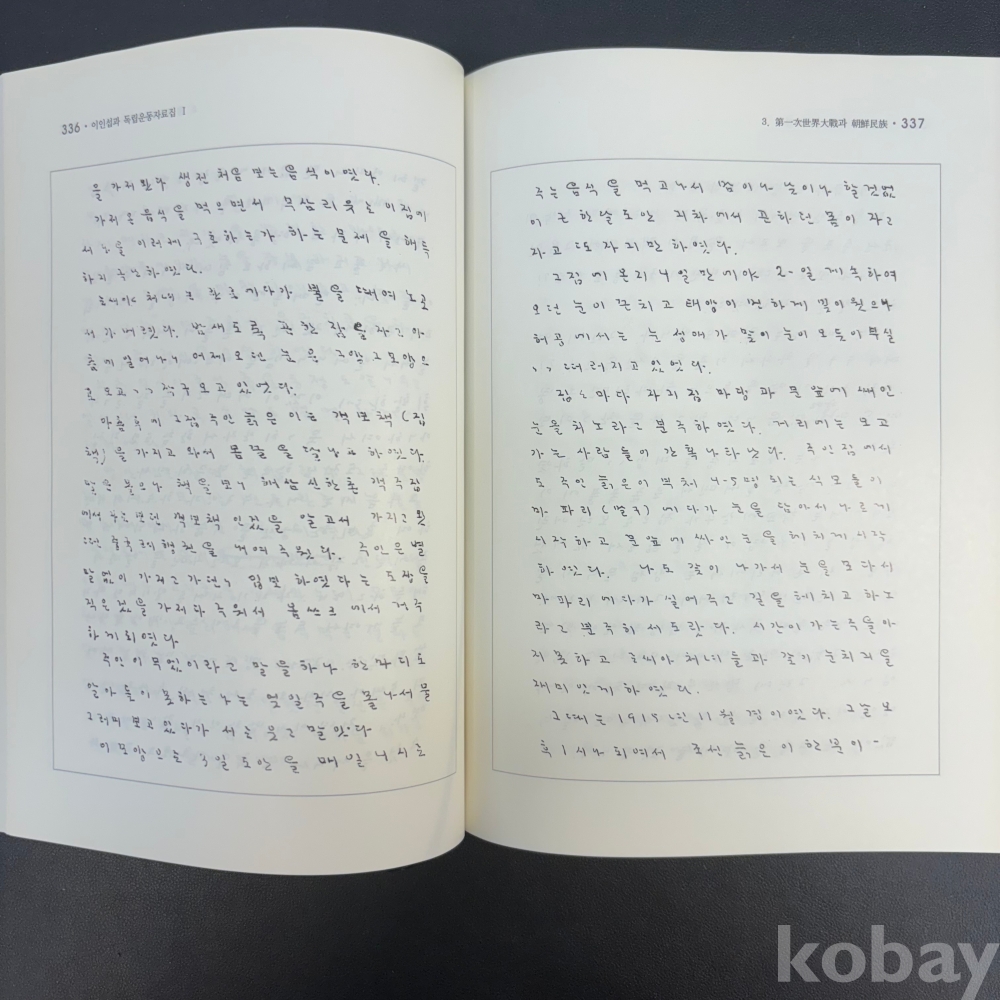 336 · 이인섭과 독립운동자료집 I
을 가리웟다 생전 처음 보는 음식이엿다.
가러온 음식을 먹으면서 무삼리웃로 이집에
서 나를 이러께 구호하는가 하는 문제를 해득
하지 못난하엿다.
불을 때여 노코
서 가버렷다. 밤새도록 곤한 잠을 자고 아
츰에 일어나니 어제 오던 눈은 그양 그모양으
로 오고 ㆍㆍ 작구 오고 있엇다.
아츰후에 그집 주인 늙은이는 객보책 (집
책)을 가지고 와서 몸끌을 달나고 하엿다.
책을 보니 해삼 신한촌 객주집
에서 객보책 인것을 알고서 가지고 왓
던 중국 려행권을 내여 주웟다. 주인은 별
말없이 가저고 가더니 입보 하엿다는 도장을
적은것을 가저다 주워서 봇쓰르에서 거주
하게 되엿다
주인이 무엇이라고 말을 하나 한마디도
알아 들이 못하는 나는 엇일줄을 몰나서 물
그러미 보고 있다가 서로 웃고 말앗다
이 모양으로 3일 도안을 매일 너 시로
3. 第一次世界大戰과 朝鮮民族 · 337
주는 음식을 먹고나서 밤이나 낮이나 할것없
이 근 한살 도안 지화에서 곤하던 몸이 자고
자고 또 자지만 하엿다.
그집에 온지 4일만에야 2-일 게속하여
오던 눈이 끈치고 태양이 번하게 빛이 웟으나
허공에서는 눈 성애가 많이 눈이 모둥이 부실
ㆍㆍ 떠러지고 있엇다.
집집마다 자지집 마당과 문앞에 싸인
눈을 치노라고 분주하엿다. 거리에는 오고
가는 사람들이 간혹 나타난다. 주인집에서
도 주인 늙은이 부처 4-5명 되는 식모들이
마파리 (발귀) 에다가 눈을 담아서 나르기
시작하고 문앞에 싸인 눈을 헤치게 시작
하엿다. 나도 갗이 나가서 눈을 모다서
마파리에다가 실어주고 길을 헤치고 하노
라고 분주히 서도랏다. 시간이 가는 줄을 아
지 못하고 글씨아 처녀들과 갗기 눈치기를
재미잇게 하엿다.
그때는 1915년 11월 경이엿다. 그날 오
혹 1시나 되여서 조선 늙은이 한분이 -
kobay